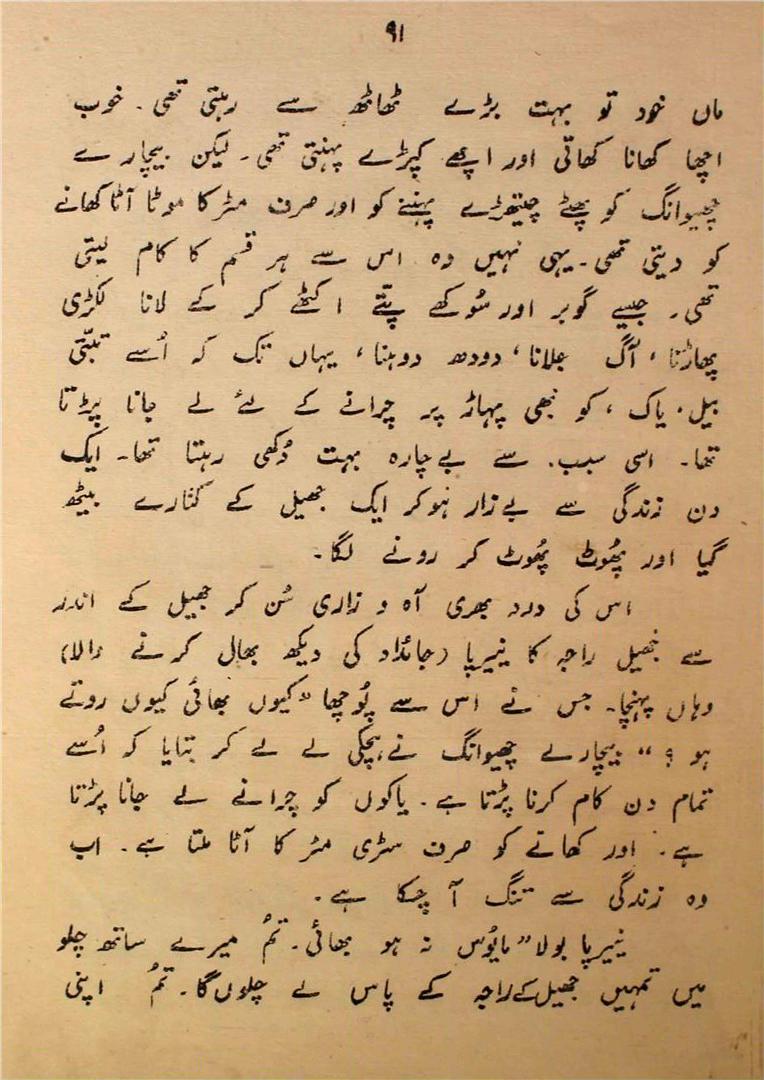 ۹۱
ماں خود تو بہت بڑے ٹھاٹھ سے رہتی تھی۔ خوب
اچھا کھانا کھاتی اور اچھے کپڑے پہنتی تھی۔ لیکن بیچارے
چھیوانگ کو پھٹے چیتھڑے پہننے کو اور صرف مٹر کا موٹا آٹا کھانے
کو دیتی تھی۔ یہی نہیں وہ اس سے ہر قسم کا کام لیتی
تھی۔ جیسے گوبر اور سُوکھے پتّے اکٹھے کر کے لانا لکڑی
پھاڑنا، آگ جلانا، دودھ دوہنا، یہاں تک کہ اُسے تبتّی
بیل، یاک، کو بھی پہاڑ پر چرانے کے لئے لے جانا پڑتا
تھا۔ اسی سبب سے بےچارہ بہت دُکھی رہتا تھا۔ ایک
دن زندگی سے بےزار ہوکر ایک جھیل کے کنارے بیٹھ
گیا اور پھُوٹ پھُوٹ کر رونے لگا۔
اس کی درد بھری آہ و زاری سُن کر جھیل کے اندر
سے جھیل راجہ کا نییرپا (جائداد کی دیکھ بھال کرنے والا)
وہاں پہنچا۔ جس نے اس سے پُوچھا ”کیوں بھائی کیوں روتے
ہو ؟“ بیچارے چھیوانگ نے ہچکی لے لے کر بتایا کہ اُسے
تمام دن کام کرنا پڑتا ہے۔ یاکوں کو چرانے لے جانا پڑتا
ہے۔ اور کھانے کو صرف سڑی مٹر کا آٹا ملتا ہے۔ اب
وہ زندگی سے تنگ آ چکا ہے۔
نییرپا بولا ”مایُوس نہ ہو بھائی۔ تمُ میرے ساتھ چلو
میں تمہیں جھیل کے راجہ کے پاس لے چلوں گا۔ تمُ اپنی